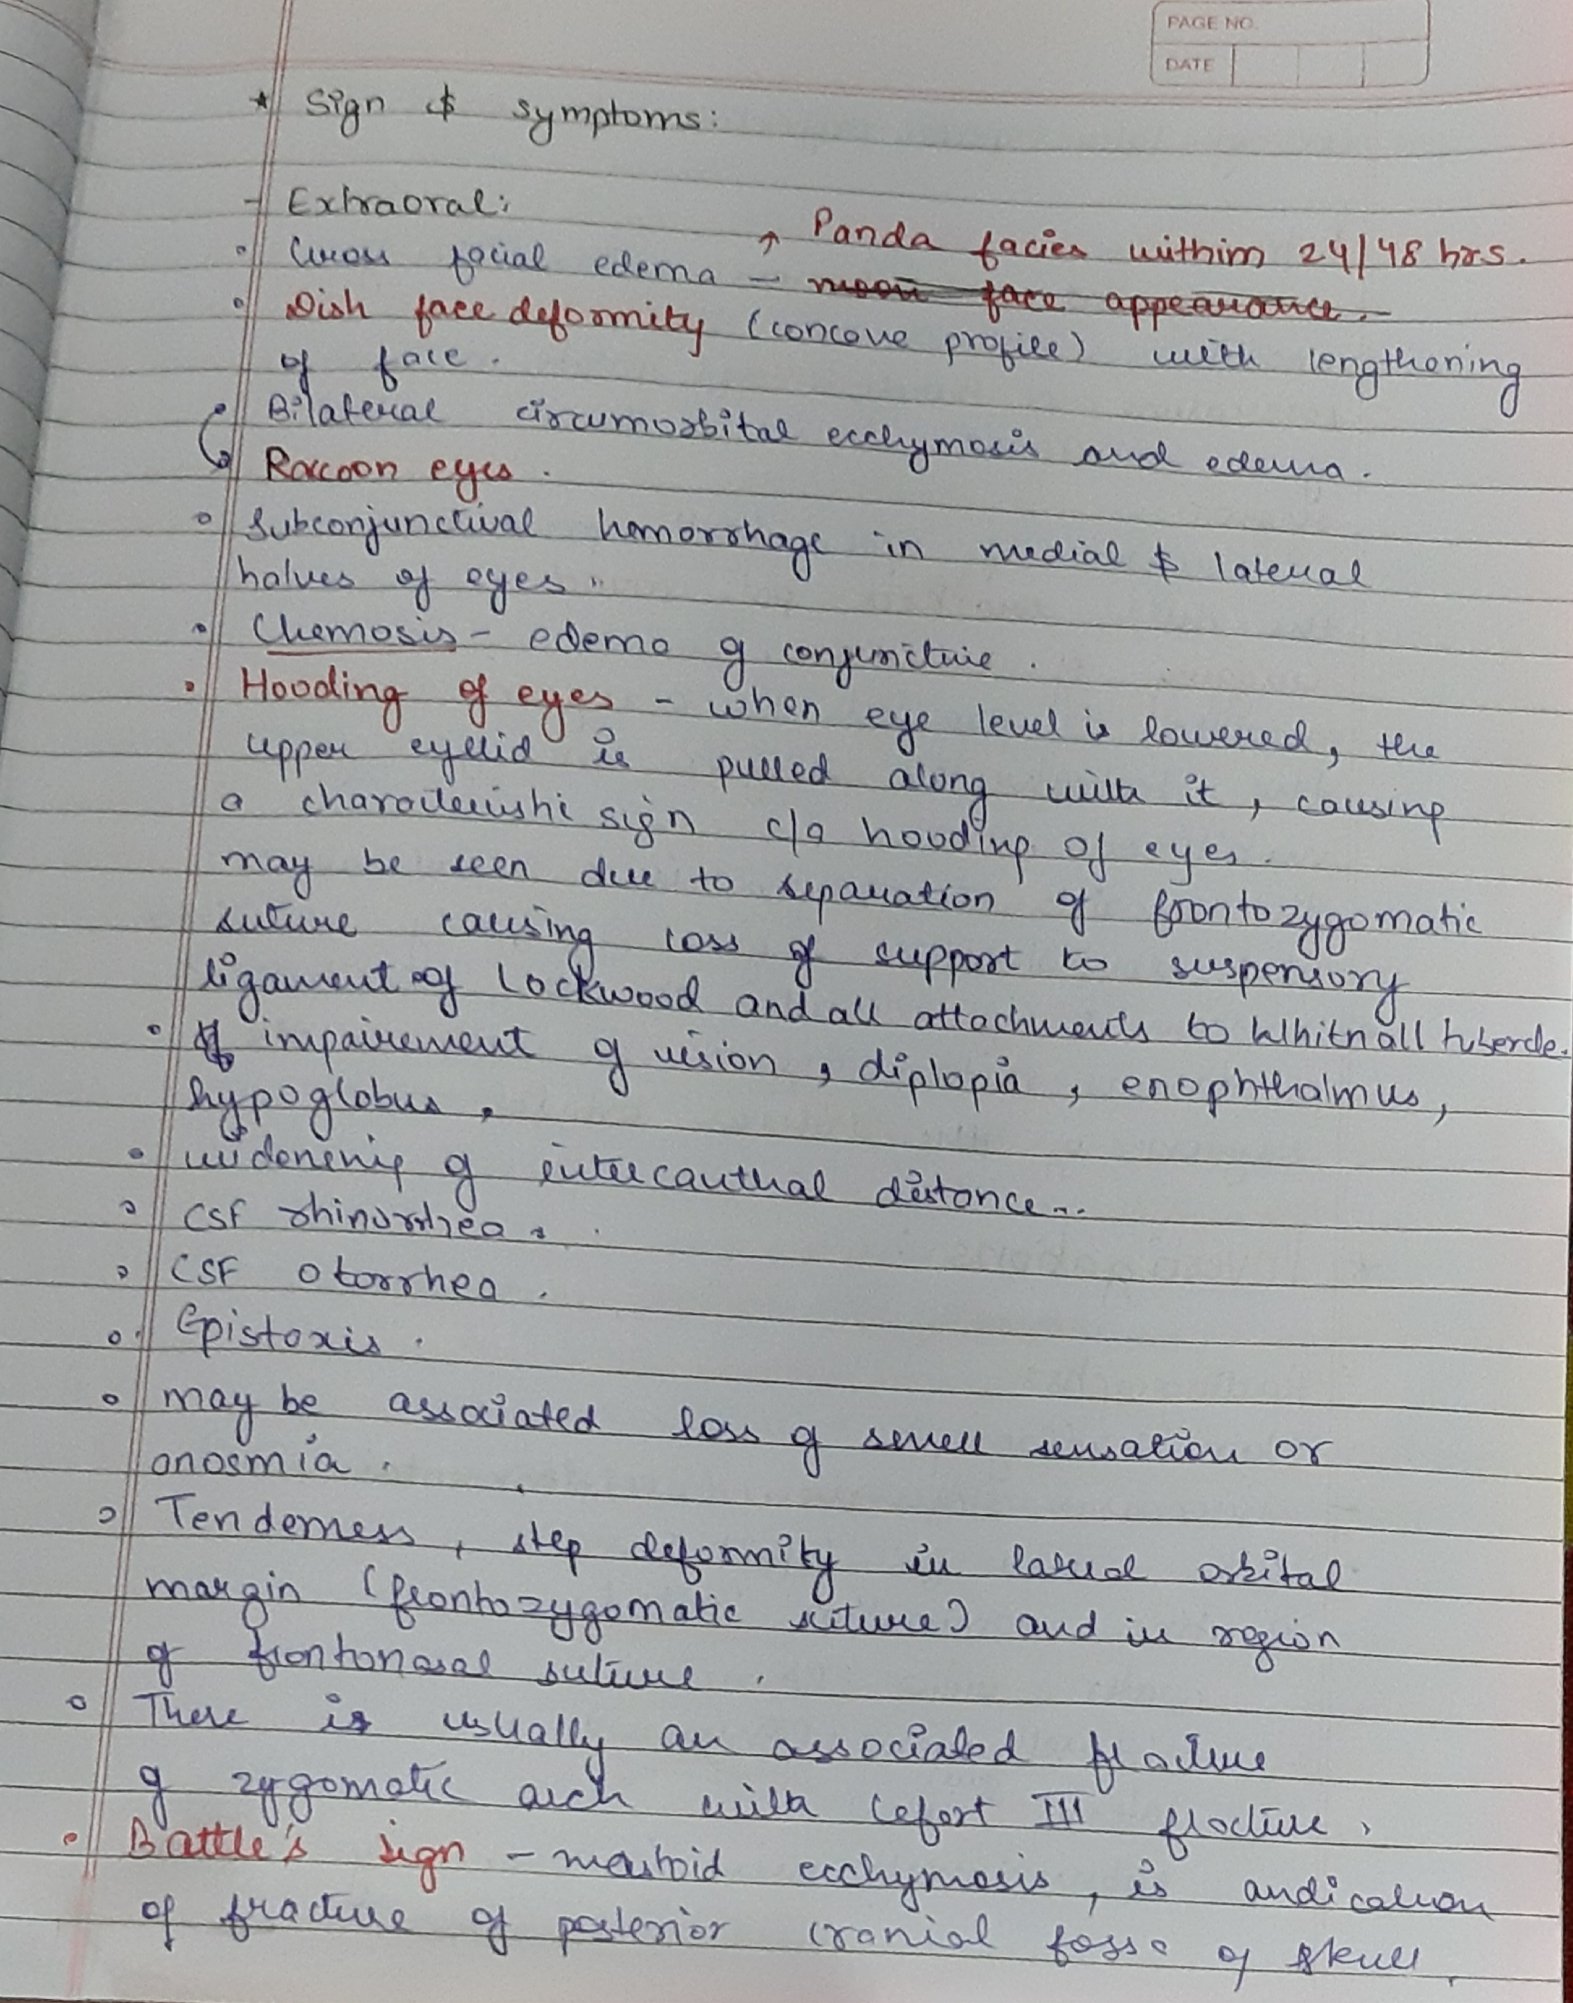 PAGE NO.
DATE
* Sign & symptoms:
- Extraoral:
↑ Panda facies within 24/48 hrs.
• Gross facial edema - moon face appearance.
• Dish face deformity (concave profile) with lengthening
of face.
• Bilateral circumorbital ecchymosis and edema.
Raccoon eyes.
• Subconjunctival hemorrhage in medial & lateral
halves of eyes.
• Chemosis - edema of conjunctive.
• Hooding of eyes - when eye level is lowered, the
upper eyelid is pulled along with it, causing
a characteristic sign c/a hooding of eyes.
may be seen due to separation of frontozygomatic
suture causing loss of support to suspensory
ligament of Lockwood and all attachments to Whitnall tubercle.
• impairement of vision, diplopia, enophthalmus,
hypoglobus,
• widening of intercanthal distance..
• CSF rhinorrhea.
• CSF otorrhea.
• Epistaxis.
• may be associated loss of smell sensation or
anosmia.
• Tenderness, step deformity in lateral orbital
margin (frontozygomatic suture) and in region
of frontonasal suture.
• There is usually an associated fracture
of zygomatic arch with Lefort III fracture.
• Battle's sign - mastoid ecchymosis, is
of fracture of posterior cranial fossa of skull.